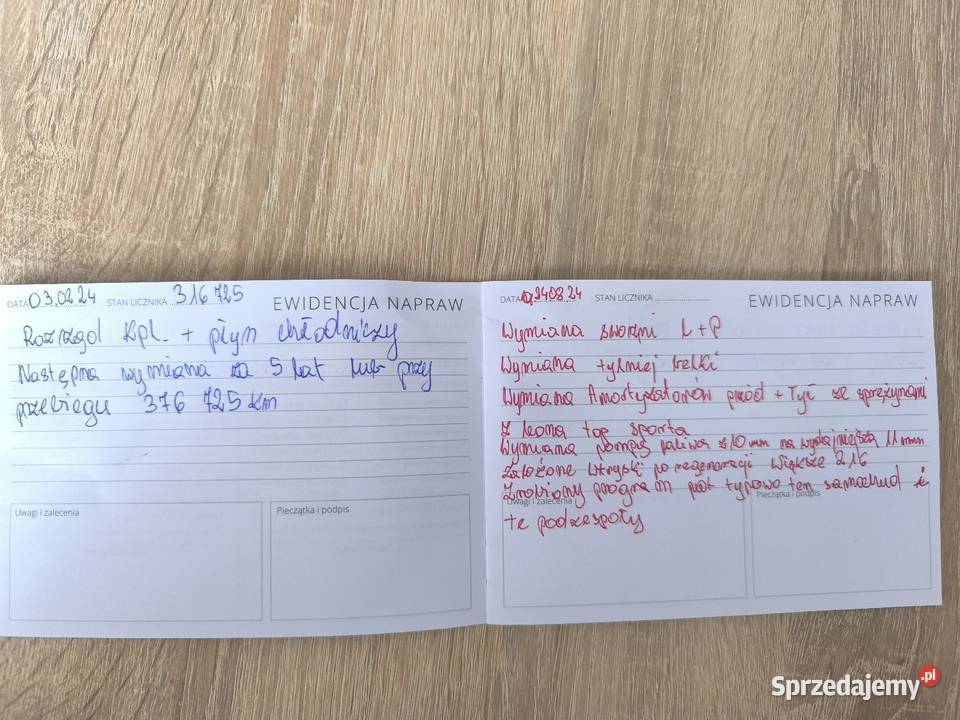 DATA 03.02.24 STAN LICZNIKA 316 725
EWIDENCJA NAPRAW
Rozrząd kpl. + płyn chłodniczy
Następna wymiana za 5 lat lub przy
przebiegu 376 725 km
Uwagi i zalecenia
Pieczątka i podpis
DATA 24.08.24 STAN LICZNIKA
EWIDENCJA NAPRAW
Wymiana sworzni L+P
Wymiana tylniej belki
Wymiana Amortyzatorów przód + Tył ze sprężynami
z Leona top sporta
Wymiana pompy paliwa z 10 mm na wydajniejszą 11 mm
Założone wtryski po regeneracji większe 216
Zrobiony program pod typowo ten samochud i
Uwagi i zalecenia
Pieczątka i podpis
te podzespoły
Sprzedajemy.pl